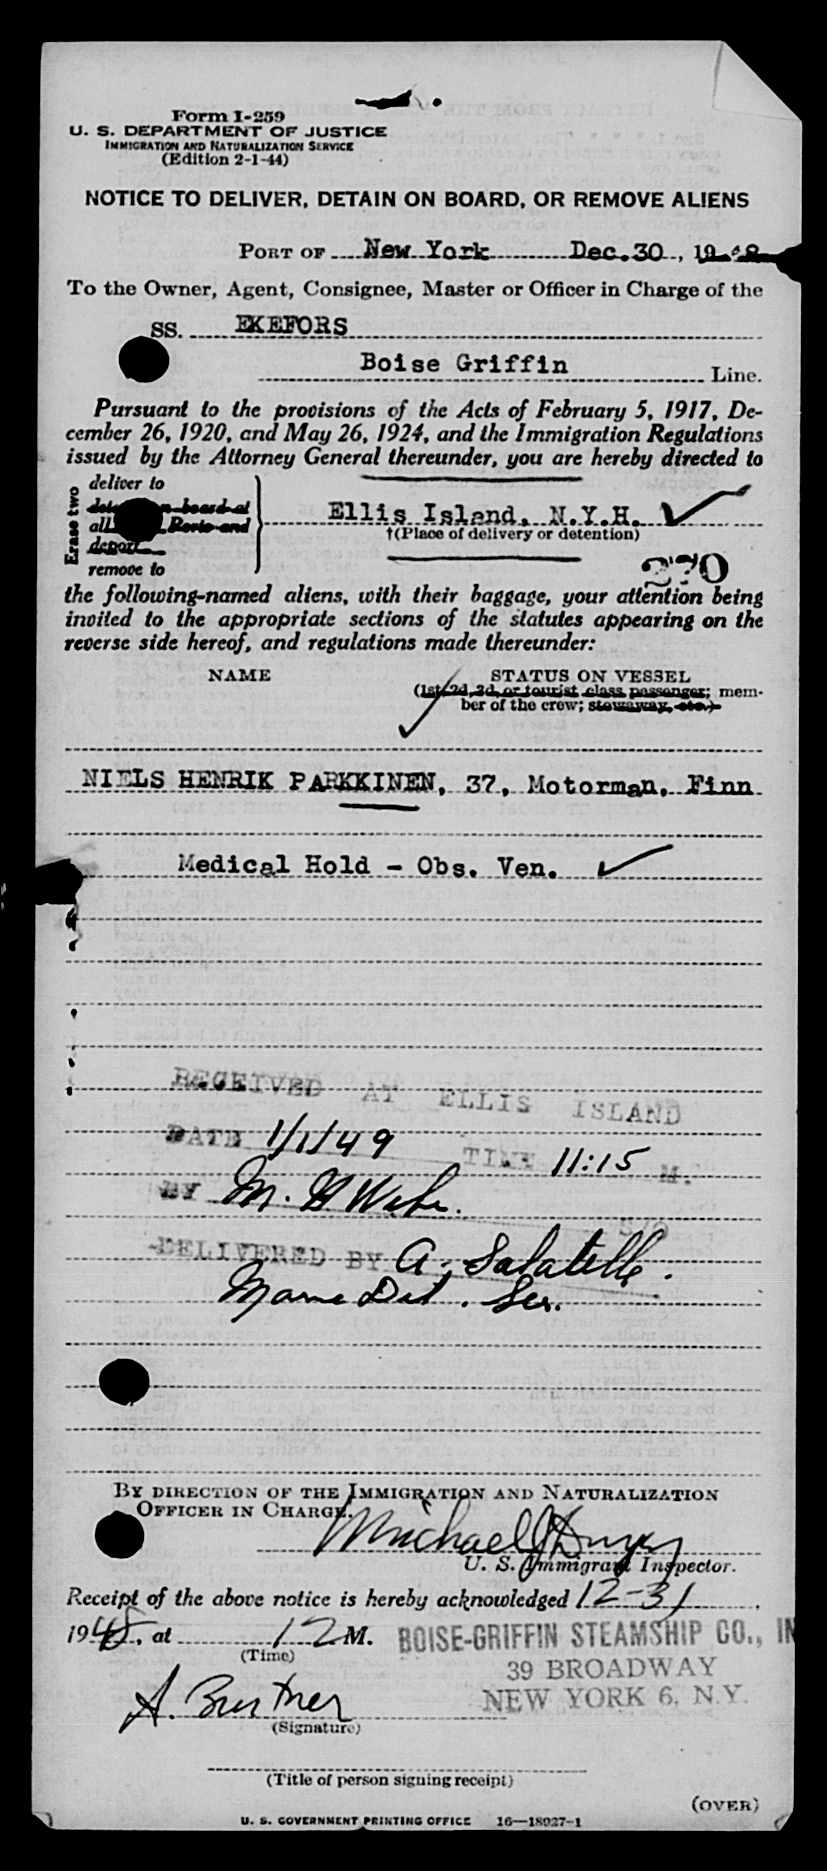 Form I-259
U. S. DEPARTMENT OF JUSTICE
IMMIGRATION AND NATURALIZATION SERVICE
(Edition 2-1-44)
NOTICE TO DELIVER, DETAIN ON BOARD, OR REMOVE ALIENS
PORT OF New York Dec. 30, 1948
To the Owner, Agent, Consignee, Master or Officer in Charge of the
SS. EKEFORS
Boise Griffin Line.
Pursuant to the provisions of the Acts of February 5, 1917, De-
cember 26, 1920, and May 26, 1924, and the Immigration Regulations
issued by the Attorney General thereunder, you are hereby directed to
Erase two
deliver to
on board at
all Ports and
deport
remove to
Ellis Island, N.Y.H.
†(Place of delivery or detention)
270
the following-named aliens, with their baggage, your attention being
invited to the appropriate sections of the statutes appearing on the
reverse side hereof, and regulations made thereunder:
NAME STATUS ON VESSEL
(1st, 2d, 3d, or tourist class passenger; mem-
ber of the crew; stowaway, etc.)
NIELS HENRIK PARKKINEN, 37, Motorman, Finn
Medical Hold - Obs. Ven.
RECEIVED AT ELLIS ISLAND
DATE 1/1/49 TIME 11:15 M.
BY M. G
DELIVERED BY A. Salatelle.
Det.
BY DIRECTION OF THE IMMIGRATION AND NATURALIZATION
OFFICER IN CHARGE.
Michael J Dwyer
U. S. Immigrant Inspector.
Receipt of the above notice is hereby acknowledged 12-31,
1948, at 12 M.
(Time)
BOISE-GRIFFIN STEAMSHIP CO., IN
39 BROADWAY
NEW YORK 6, N.Y.
A.
(Signature)
(Title of person signing receipt)
(OVER)
U. S. GOVERNMENT PRINTING OFFICE 16—18027-1